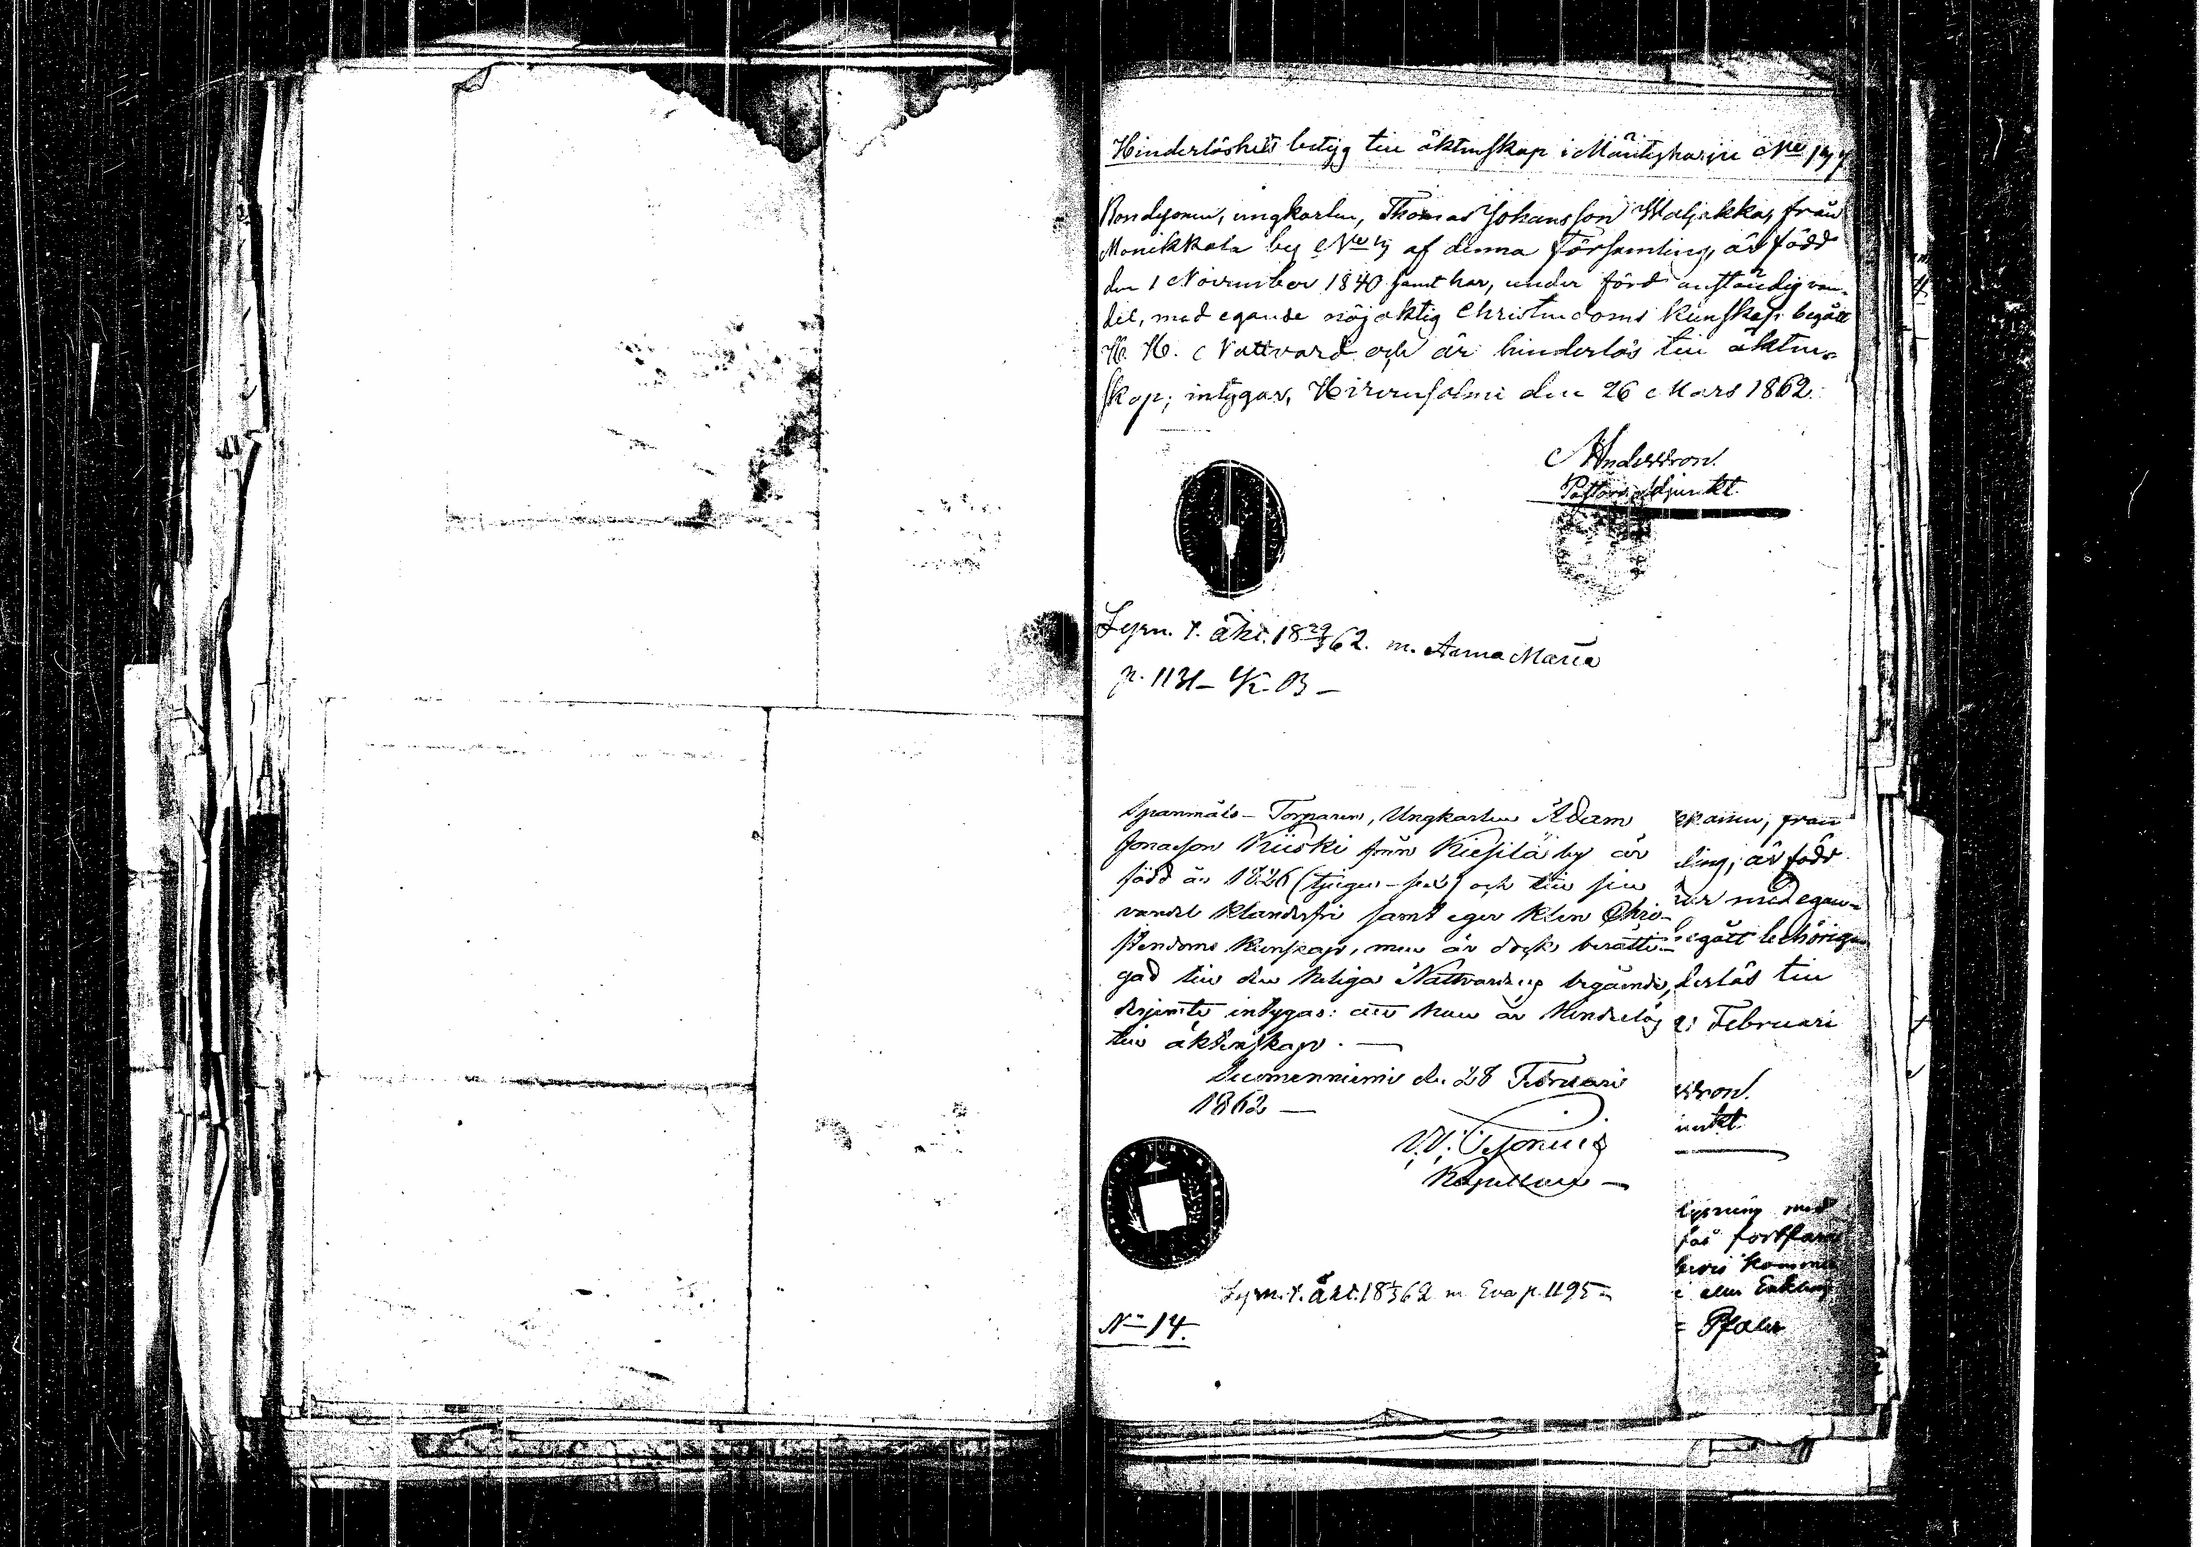 Hinderlöshets betyg till äktenskap i Mäntyharju No
Bondsonen, ungkarlen, Thomas Johansson Waljakka, från
Monikkala by No af denna Församling, är född
den 1 November 1840 samt har, under förd anständig van-
del, med egande nöjaktig Christendoms kunskap begått
H. H. Nattvard och är hinderlös till äkten-
skap; intygar, Hirvensalmi den 26 Mars 1862.
Andersson.
Pastors adjunkt.
Lysn. t. äkt. 62. m. Anna Maria
p. 1131 —
Spanmåls-Torparen, Ungkarlen Adam
Jonasson Kiiski från Kiesilä by är
född år 1826 (tjugu-sex) och till sin
vandel klanderfri samt eger klen Chri-
stendoms kunskap, men är dock berätti-
gad till den heliga Nattvardens begående,
derjemte intygas: att han är hinderlös
till äktenskap. —
Suomenniemi d. 28 Februari
1862 —
Kapellan —
Lysn. t. äkt. 62 m. Eva p. 1195
No 14.
från
ling, är född
har med egan-
begått behörigen
derlös till
Februari
sson.
unkt.
lysning med
fortfara
bevis kommer
i eller Enkling